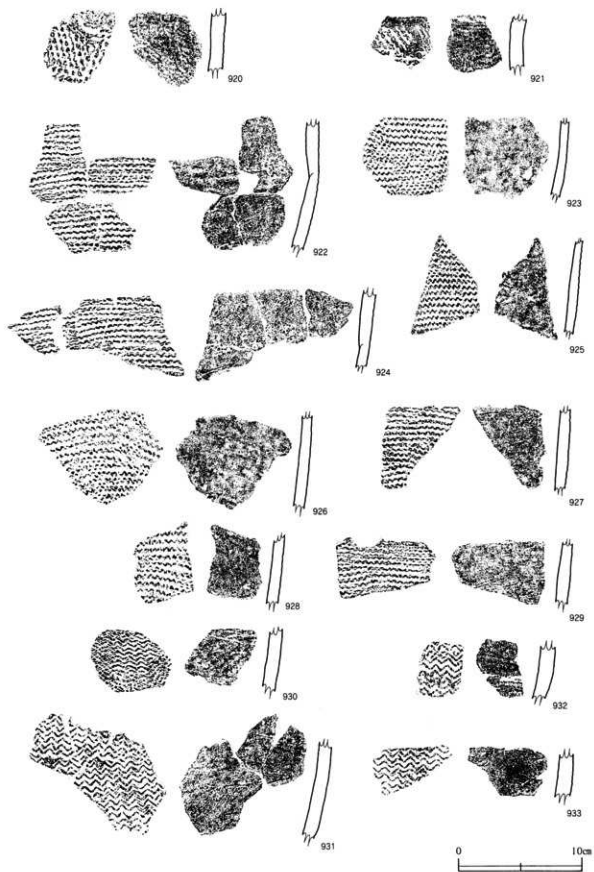 920
921
922
923
924
925
926
927
928
929
930
931
932
933
0 10cm